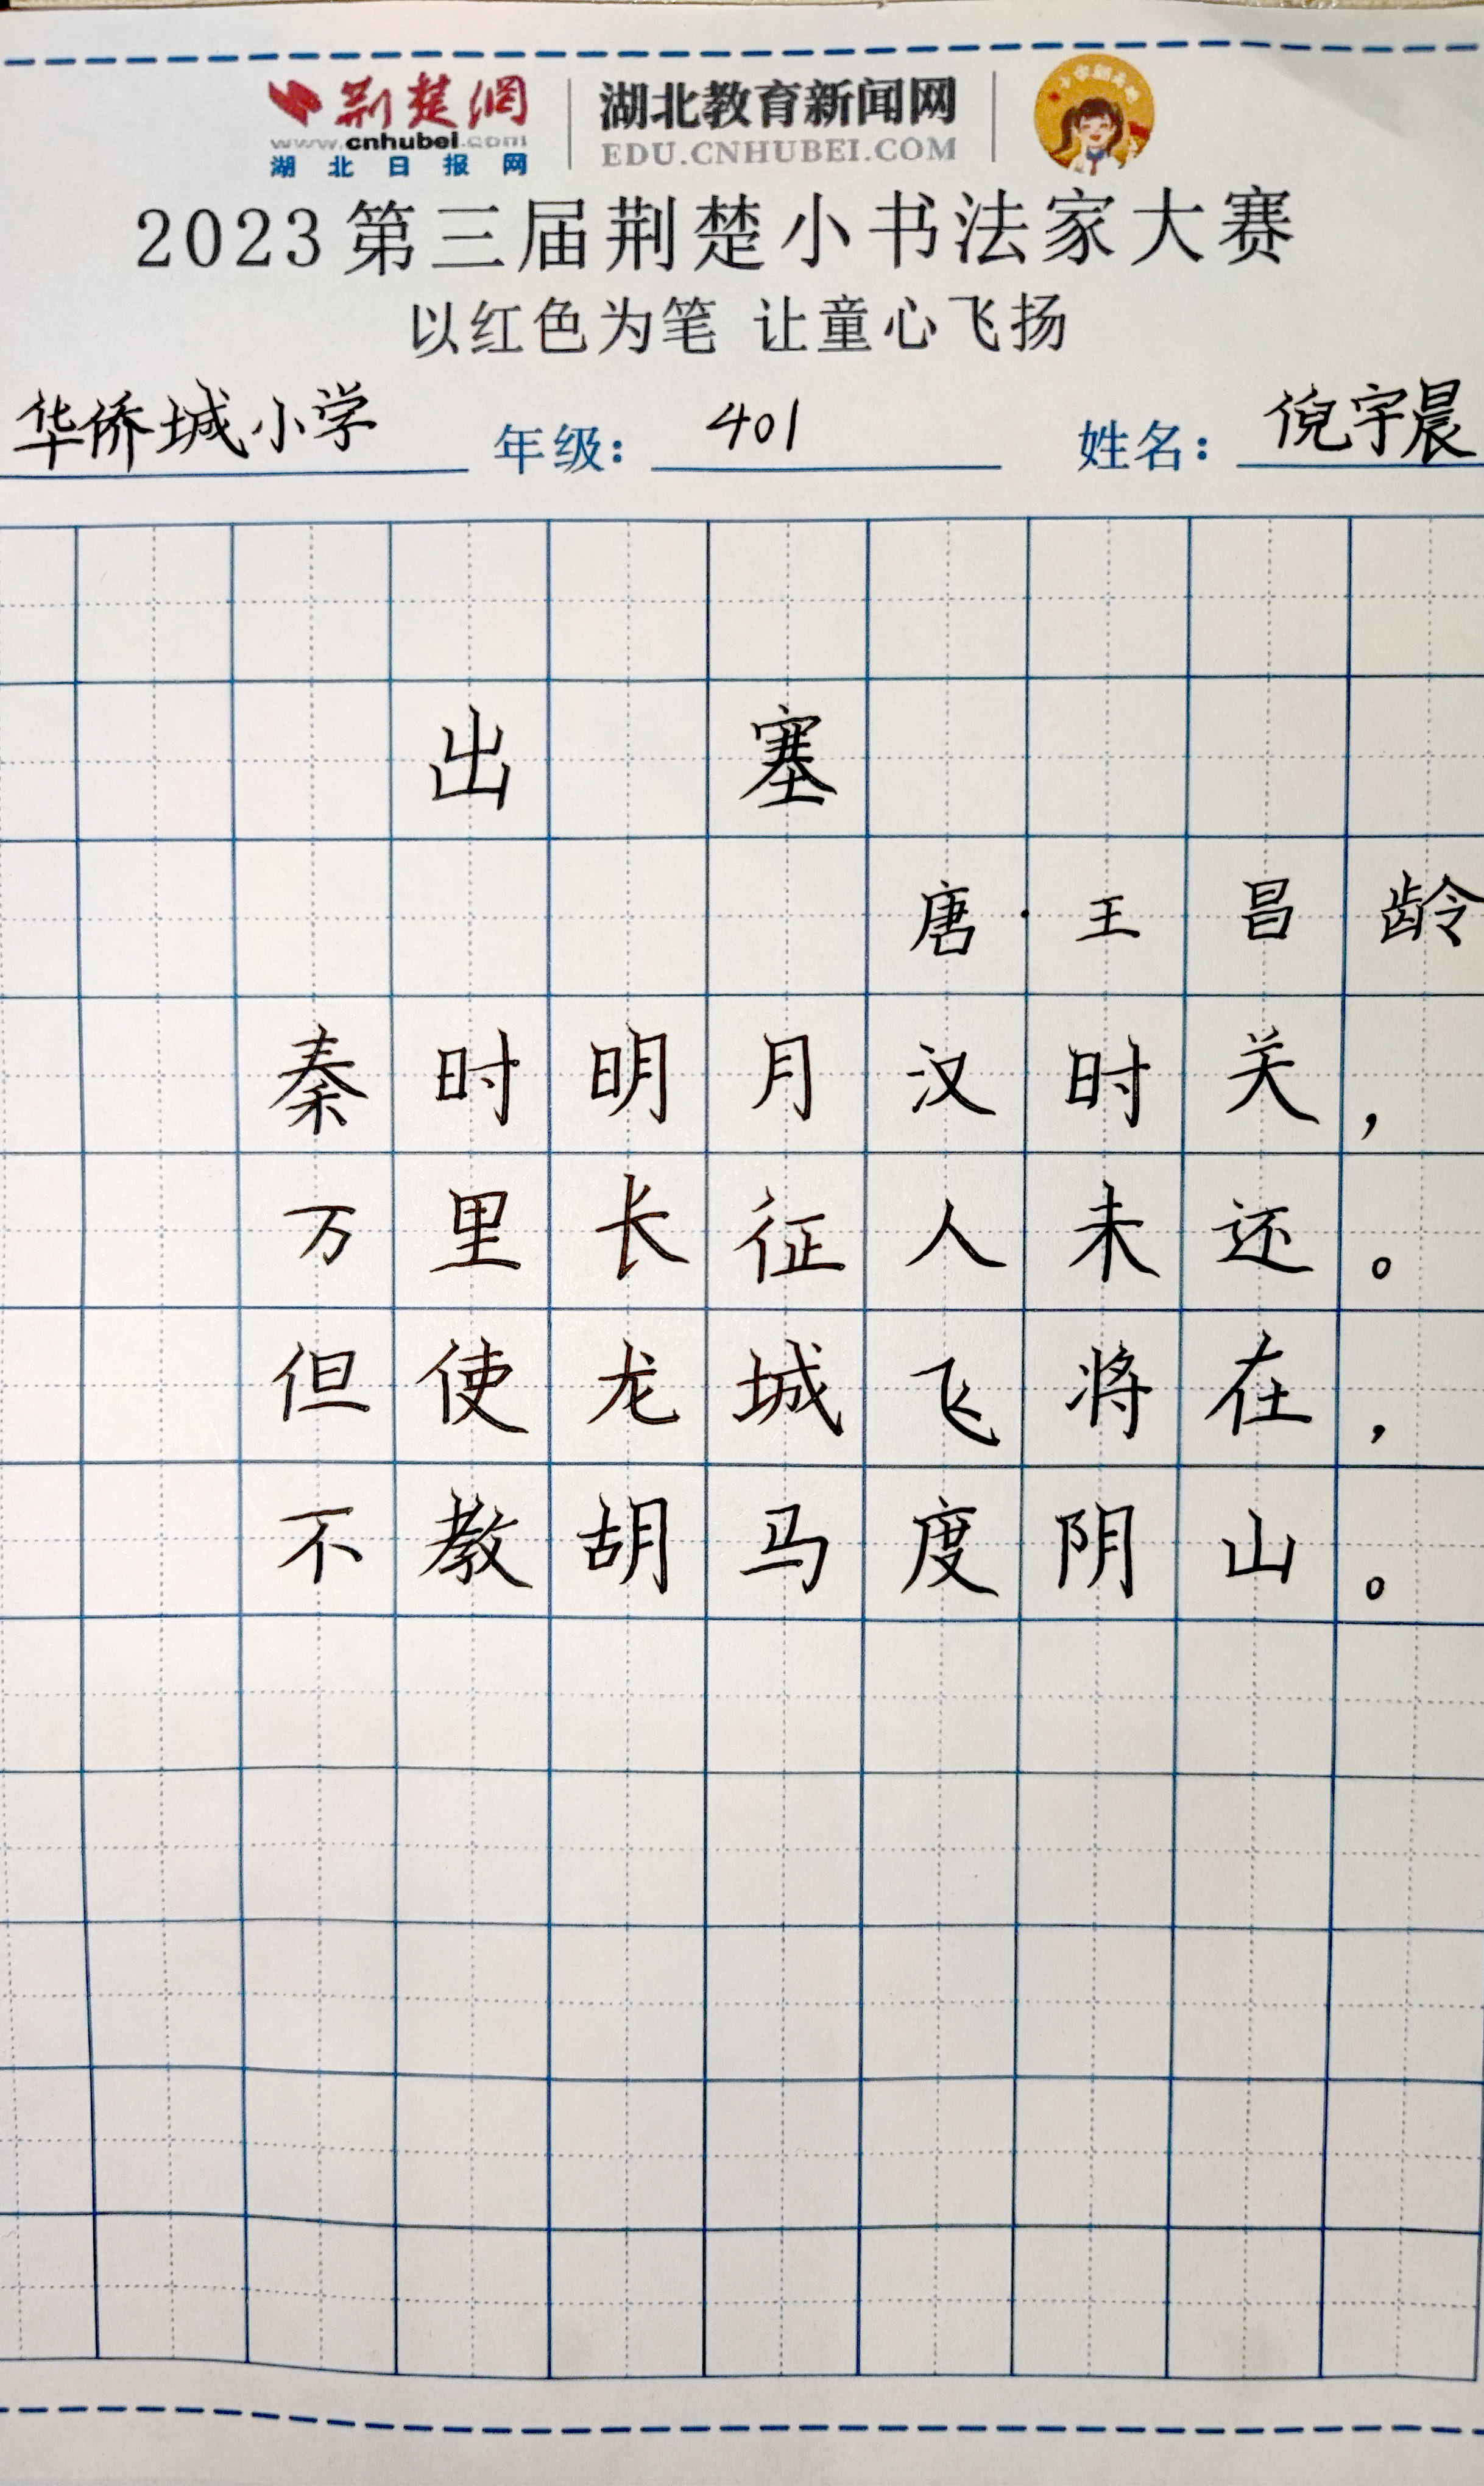 荆楚網 湖北教育新闻网
www.cnhubei.com EDU.CNHUBEI.COM
湖北日报网
2023第三届荆楚小书法家大赛
以红色为笔 让童心飞扬
华侨城小学 年级：401 姓名：倪宇晨
出塞
唐·王昌龄
秦时明月汉时关，
万里长征人未还。
但使龙城飞将在，
不教胡马度阴山。